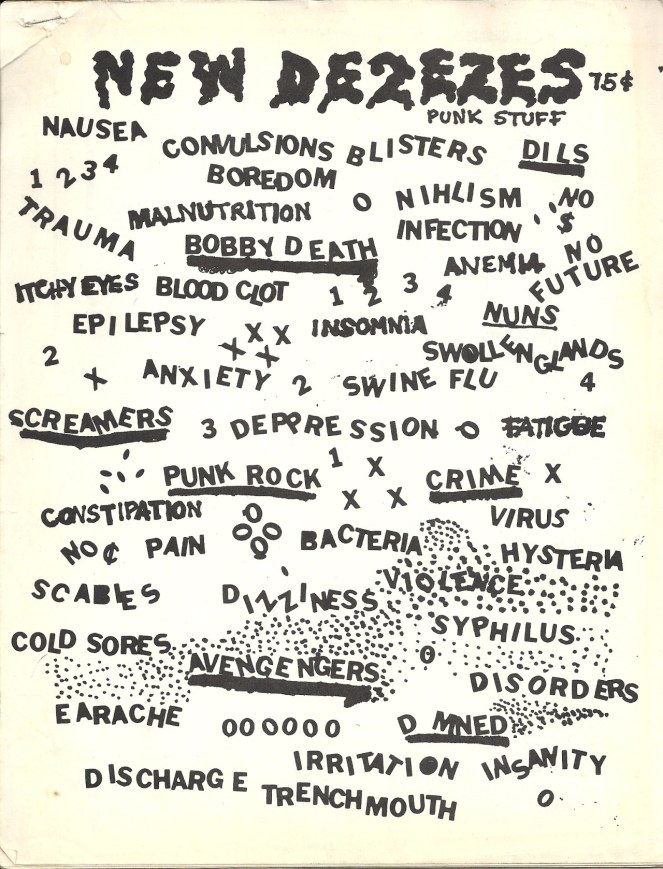 NEW DE2EZES 75¢
PUNK STUFF
NAUSEA CONVULSIONS BLISTERS DILS
1 2 3 4 BOREDOM
TRAUMA MALNUTRITION 0 NIHLISM NO $
BOBBY DEATH INFECTION NO FUTURE
ANEMIA
ITCHY EYES BLOOD CLOT 1 2 3 4
EPILEPSY X X X X INSOMNIA NUNS
2 X ANXIETY 2 SWINE FLU SWOLLEN GLANDS 4
SCREAMERS 3 DEPPRESSION 0 FATIGUE
PUNK ROCK 1 X X X CRIME X
CONSTIPATION 0 0 0 0 0 VIRUS
NO ¢ PAIN BACTERIA HYSTERIA
SCABIES DIZZINESS VIOLENCE
COLD SORES SYPHILUS
AVENGENGERS 0 DISORDERS
EARACHE 000000 D MNED
IRRITATION INSANITY
DISCHARGE TRENCHMOUTH 0